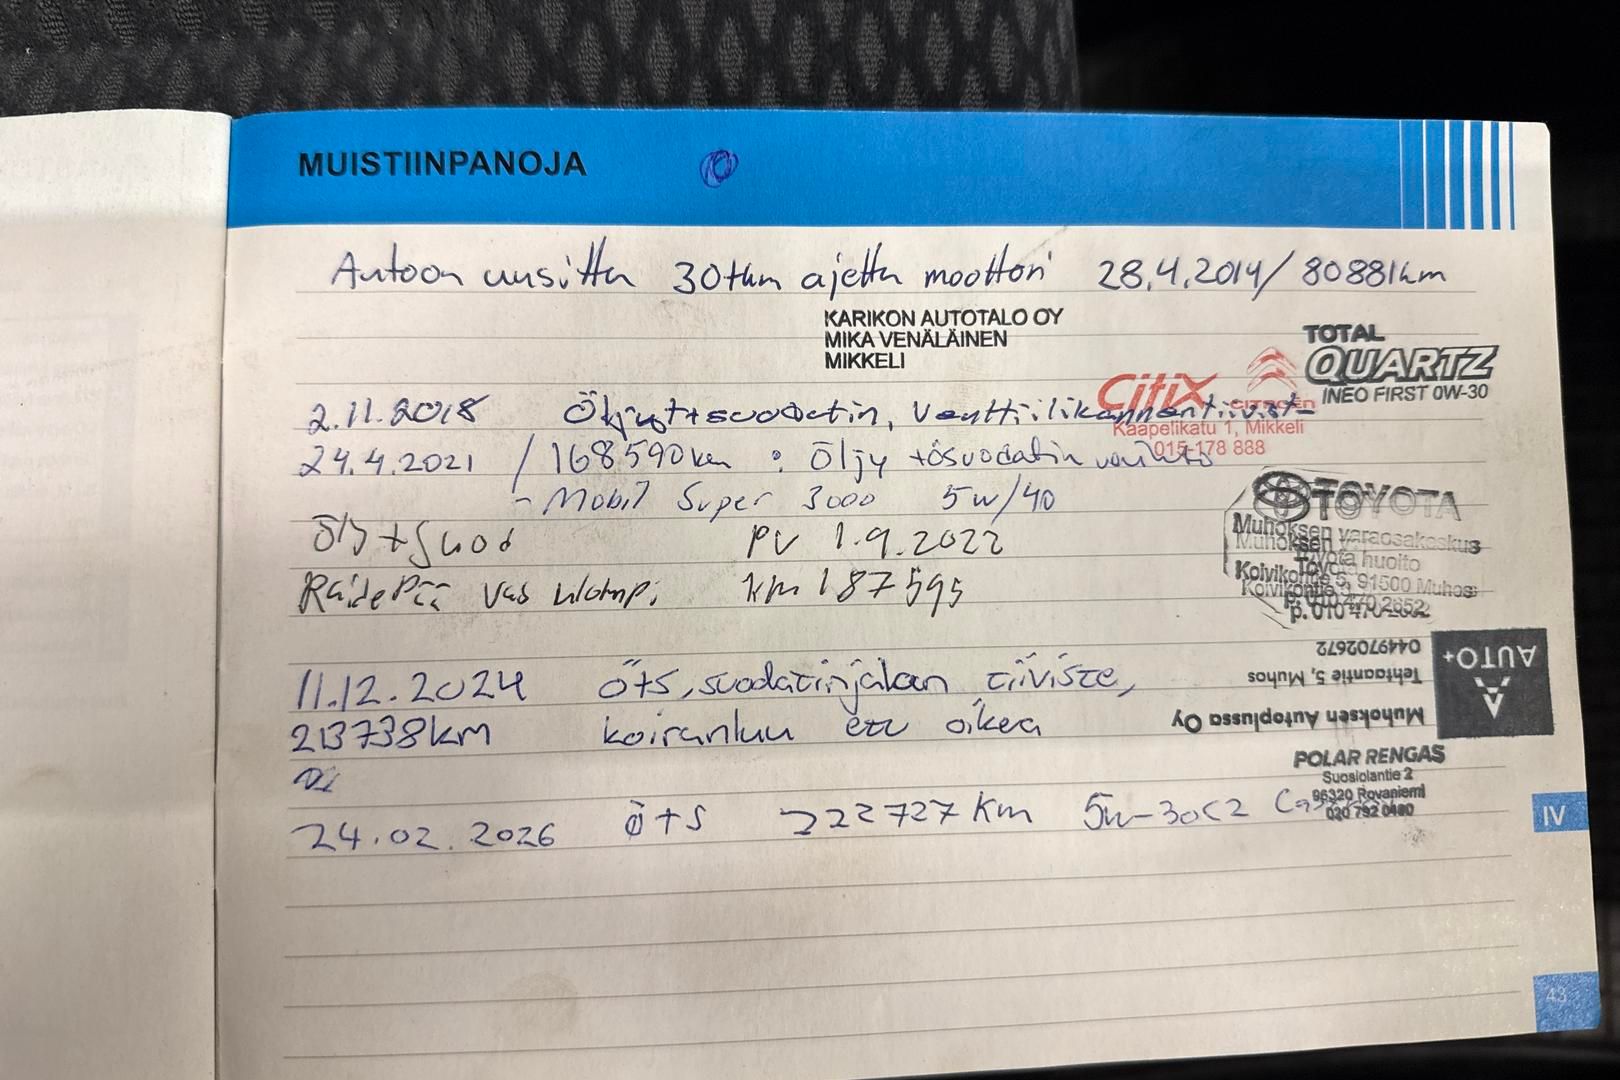 MUISTIINPANOJA
Autoon uusittu 30tkm ajettu moottori 28.4.2014/80881km
KARIKON AUTOTALO OY
MIKA VENÄLÄINEN
MIKKELI
TOTAL
QUARTZ
INEO FIRST 0W-30
Citix
CITROËN
Kaapelikatu 1, Mikkeli
015-178 888
2.11.2018 Öljyt+suodatin, Venttiilikannentiivist-
24.4.2021 / 168590km : Öljy +ösuodatin vaihto
- Mobil Super 3000 5w/40
TOYOTA
Muhoksen varaosakeskus
Toyota huolto
Koivikontie 5, 91500 Muhos
p. 010 470 2652
Ölj+Suod PV 1.9.2022
RaidePää vas ulompi km 187595
AUTO+
Muhoksen Autoplussa Oy
Tehtaantie 5, Muhos
0449702672
11.12.2024 ÖtS, suodatinjalan tiiviste,
213738km koiranluu etu oikea
POLAR RENGAS
Suosiolantie 2
96320 Rovaniemi
020 792 0480
24.02.2026 ö+s 222727 km 5w-30C2
IV
43